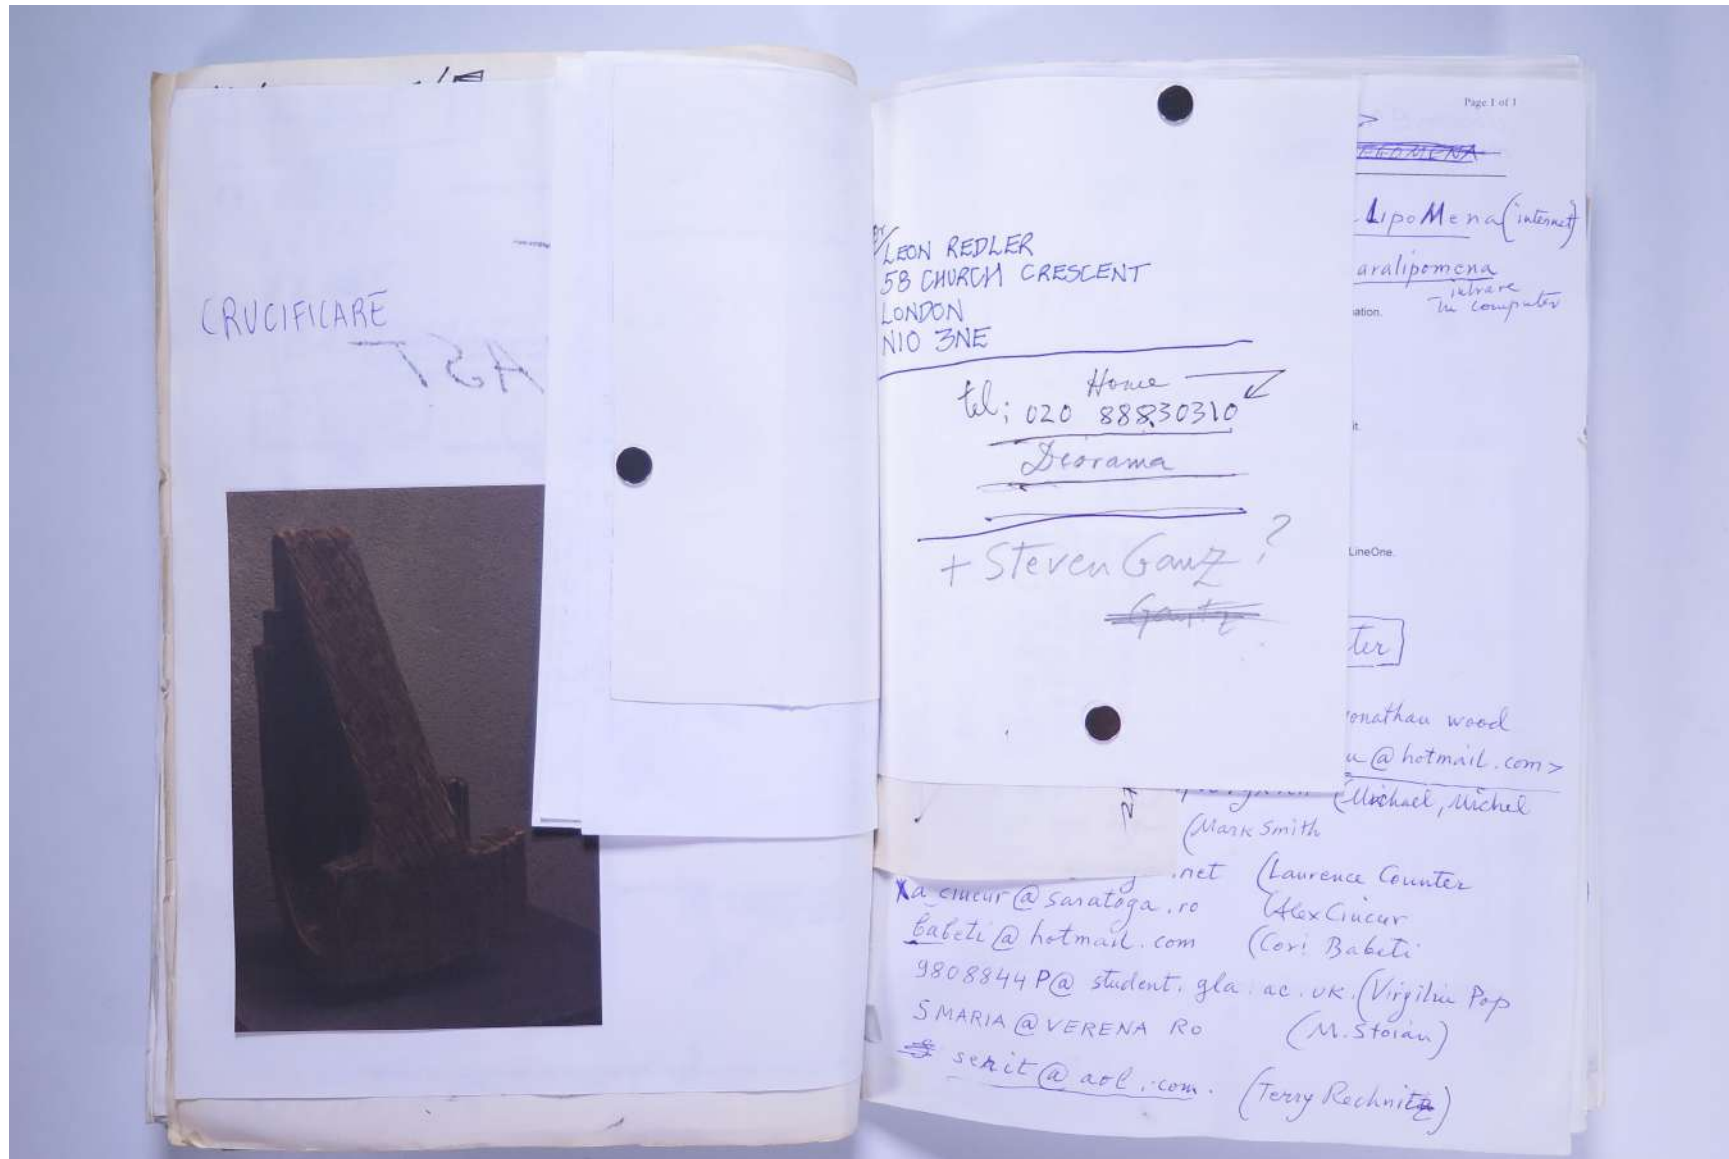 CRUCIFICARE
AST
Dr LEON REDLER
58 CHURCH CRESCENT
LONDON
N10 3NE
Home
tel; 020 88830310
Diorama
+ Steven Ganz ?
Page 1 of 1
>
LipoMena (internet)
aralipomena
intrare
in computer
ation.
it.
LineOne.
ter
onathan wood
u@hotmail.com>
(Michael, Michel
27
(Mark Smith
.net (Laurence Counter
a_ciucur@saratoga.ro (Alex Ciucur
babeti@hotmail.com (Cori Babeti
9808844P@student.gla.ac.uk. (Virgiliu Pop
SMARIA@VERENA RO (M. Stoian)
serit@aol.com. (Terry Rechnitz)